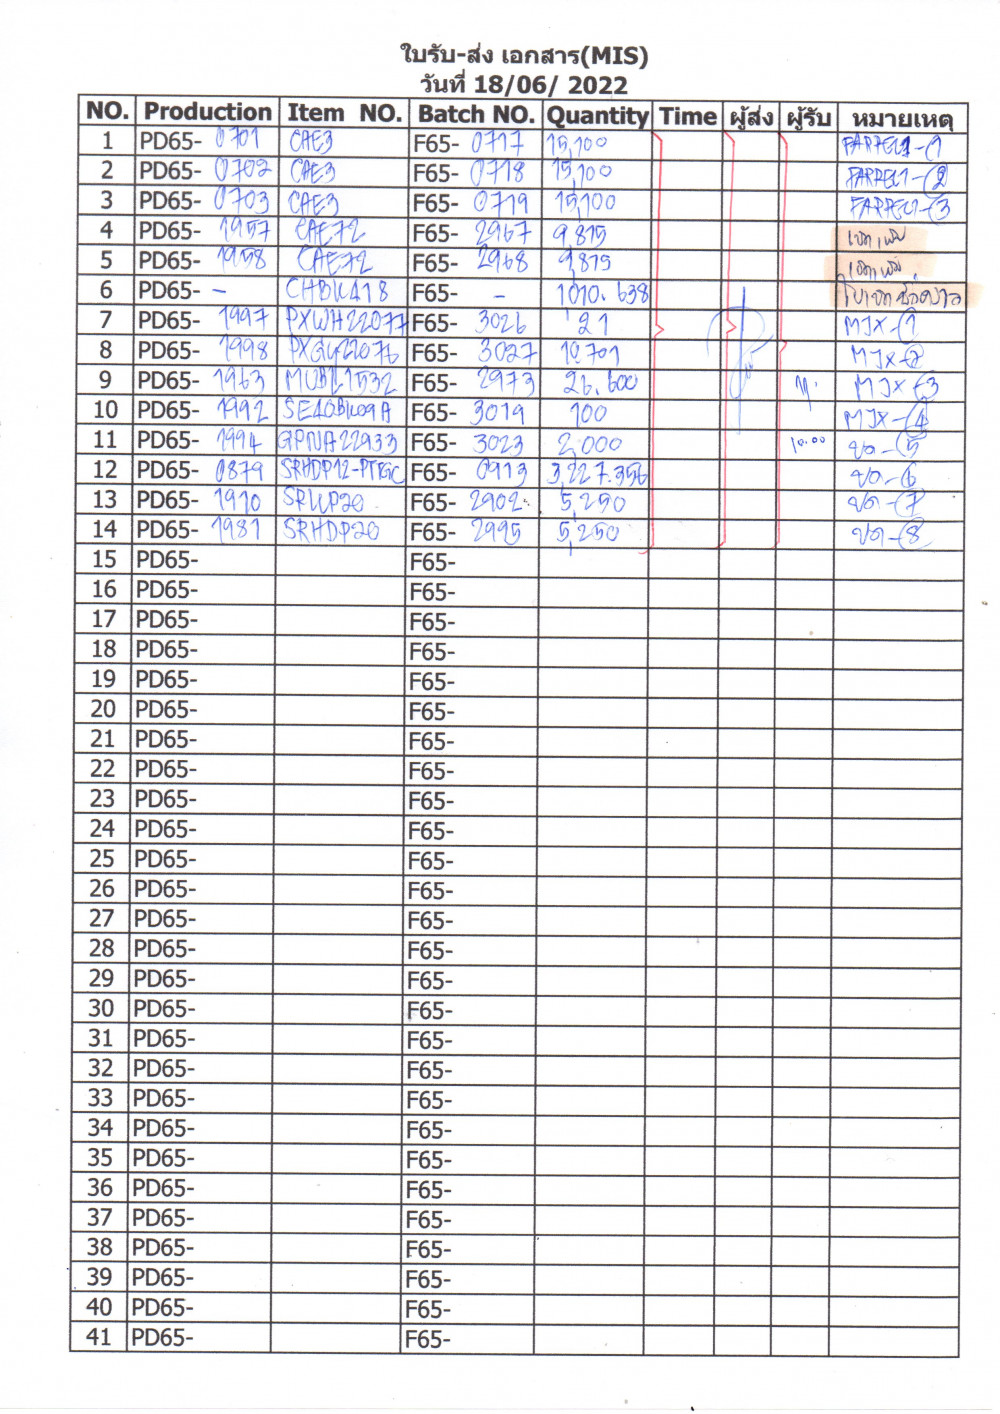 ใบรับ-ส่ง เอกสาร(MIS)
วันที่ 18/06/ 2022
NO. Production Item NO. Batch NO. Quantity Time ผู้ส่ง ผู้รับ หมายเหตุ
1 PD65- 0701 CAE3 F65- 0717 15,100 FARREL1-1
2 PD65- 0702 CAE3 F65- 0718 15,100 FARREL1-2
3 PD65- 0703 CAE3 F65- 0719 15,100 FARREL1-3
4 PD65- 1957 CAE72 F65- 2967 9,815
5 PD65- 1958 CAE72 F65- 2968 9,815
6 PD65- - CHBK418 F65- - 1010.638
7 PD65- 1997 PXWH22077 F65- 3026 121 MIX-1
8 PD65- 1998 PXGY22076 F65- 3027 10.701 MIX-2
9 PD65- 1963 MUBL1532 F65- 2973 26.600 MIX-3
10 PD65- 1992 F65- 3019 100 MIX-4
11 PD65- 1994 GPNA22933 F65- 3023 2,000 10.00 บด-5
12 PD65- 0879 SRHDP12-PTTGC F65- 0913 3,227.356 บด-6
13 PD65- 1910 SRLLP20 F65- 2902 5,250 บด-7
14 PD65- 1981 SRHDP20 F65- 2995 5,250 บด-8
15 PD65- F65-
16 PD65- F65-
17 PD65- F65-
18 PD65- F65-
19 PD65- F65-
20 PD65- F65-
21 PD65- F65-
22 PD65- F65-
23 PD65- F65-
24 PD65- F65-
25 PD65- F65-
26 PD65- F65-
27 PD65- F65-
28 PD65- F65-
29 PD65- F65-
30 PD65- F65-
31 PD65- F65-
32 PD65- F65-
33 PD65- F65-
34 PD65- F65-
35 PD65- F65-
36 PD65- F65-
37 PD65- F65-
38 PD65- F65-
39 PD65- F65-
40 PD65- F65-
41 PD65- F65-